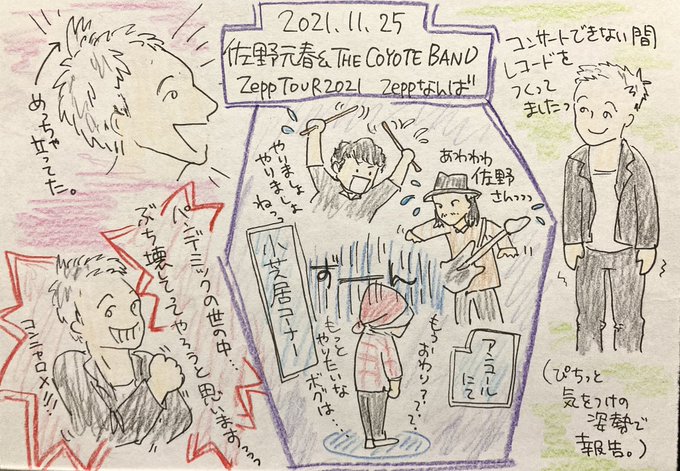 2021.11.25
佐野元春&THE COYOTE BAND
Zepp TOUR2021 Zeppなんば
めっちゃ立ってた。
コンサートできない間
レコードを
つくって
ましたっ
やりましょ
やりましょ
ねっっ
あわわわ
佐野
さんっっっ
小芝居コーナー
ずーん
もうおわり???
もっと
やりたいな
ボクは…
アンコール
にて
パンデミックの世の中…
ぶち壊してやろうと思いますっっっ
コンニャロメ!!!
(ぴちっと
気をつけの
姿勢で
報告。)